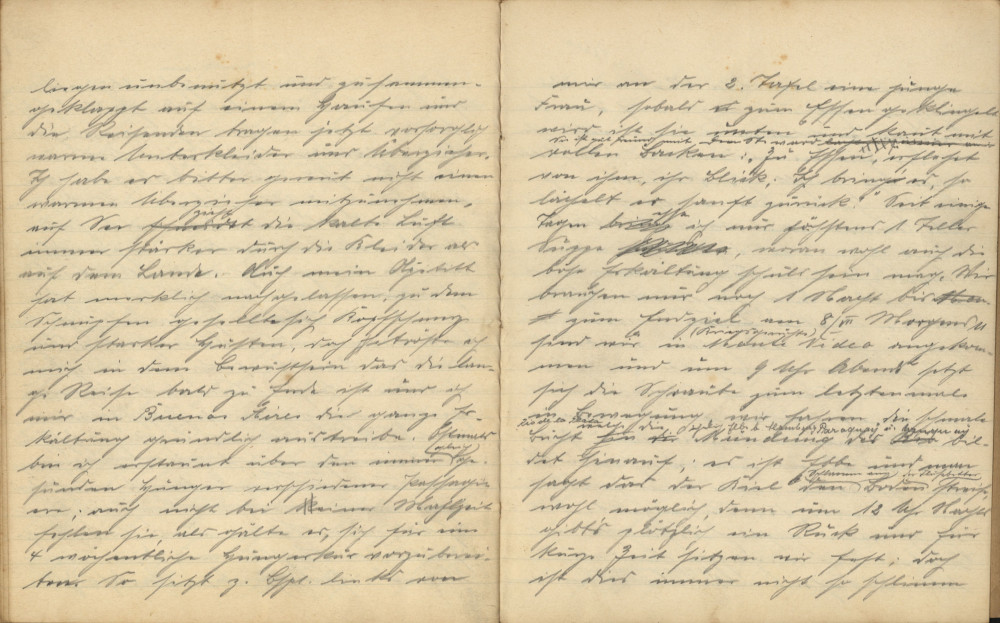 liegen unbenutzt und zusammen-
geklappt auf einem Haufen und
die Reisenden tragen jetzt vorsorglich
warme Unterkleider und Überzieher.
Ich habe es bitter gereut nicht einen
warmen Überzieher mitzunehmen,
auf See zieht die kalte Luft
immer stärker durch die Kleider als
auf dem Lande. Auch mein Appetitt
hat merklich nachgelassen, zu dem
Schnupfen gesellte sich
und starker Husten, doch getröste ich
mich in dem Bewustsein das die lan-
ge Reise bald zu Ende ist und ich
mir in Buenos Aires die ganze Er-
kältung gründlich austreibe. Öfters
bin ich erstaunt über den immer gleich ge-
sunden Hunger verschiedener Passagie-
re; auch nicht bei einer Mahlzeit
fehlen sie, als gälte es, sich für eine
4 wöchentliche Hungerkur vorzuberei-
ten. So sitzt z. Bspl. links von
mir an der 2. Tafel eine junge
Frau, sobald zum Essen geklingelt
wird ist sie unten und kaut mit
vollen Backen; "Zu Essen, erflehet
von ihm, ihr Blick; Ich bring es, so
lächelt er sanft zurück." Seit einigen
Tagen ich nur höchstens 1 Teller
Suppe, woran wohl auch die
böse Erkältung schuld sein mag. Wir
brauchen nur noch 1 Nacht bis
zum Endziel am 8/VII Morgens 11
sind wir in Monte Video angekom-
men und um 9 Uhr Abends setzt
sich die Schraube zum letztenmale
in Bewegung, wir fahren die schmale
Bucht welche die Mündung des bil-
det hinauf; es ist Ebbe und man
sagt das der Kiel den Boden streift
wohl möglich, denn um 12 Uhr Nachts
gibts plötzlich ein Ruck und für
kurze Zeit sitzen wir fest; doch
ist dies immer nicht so schlimm